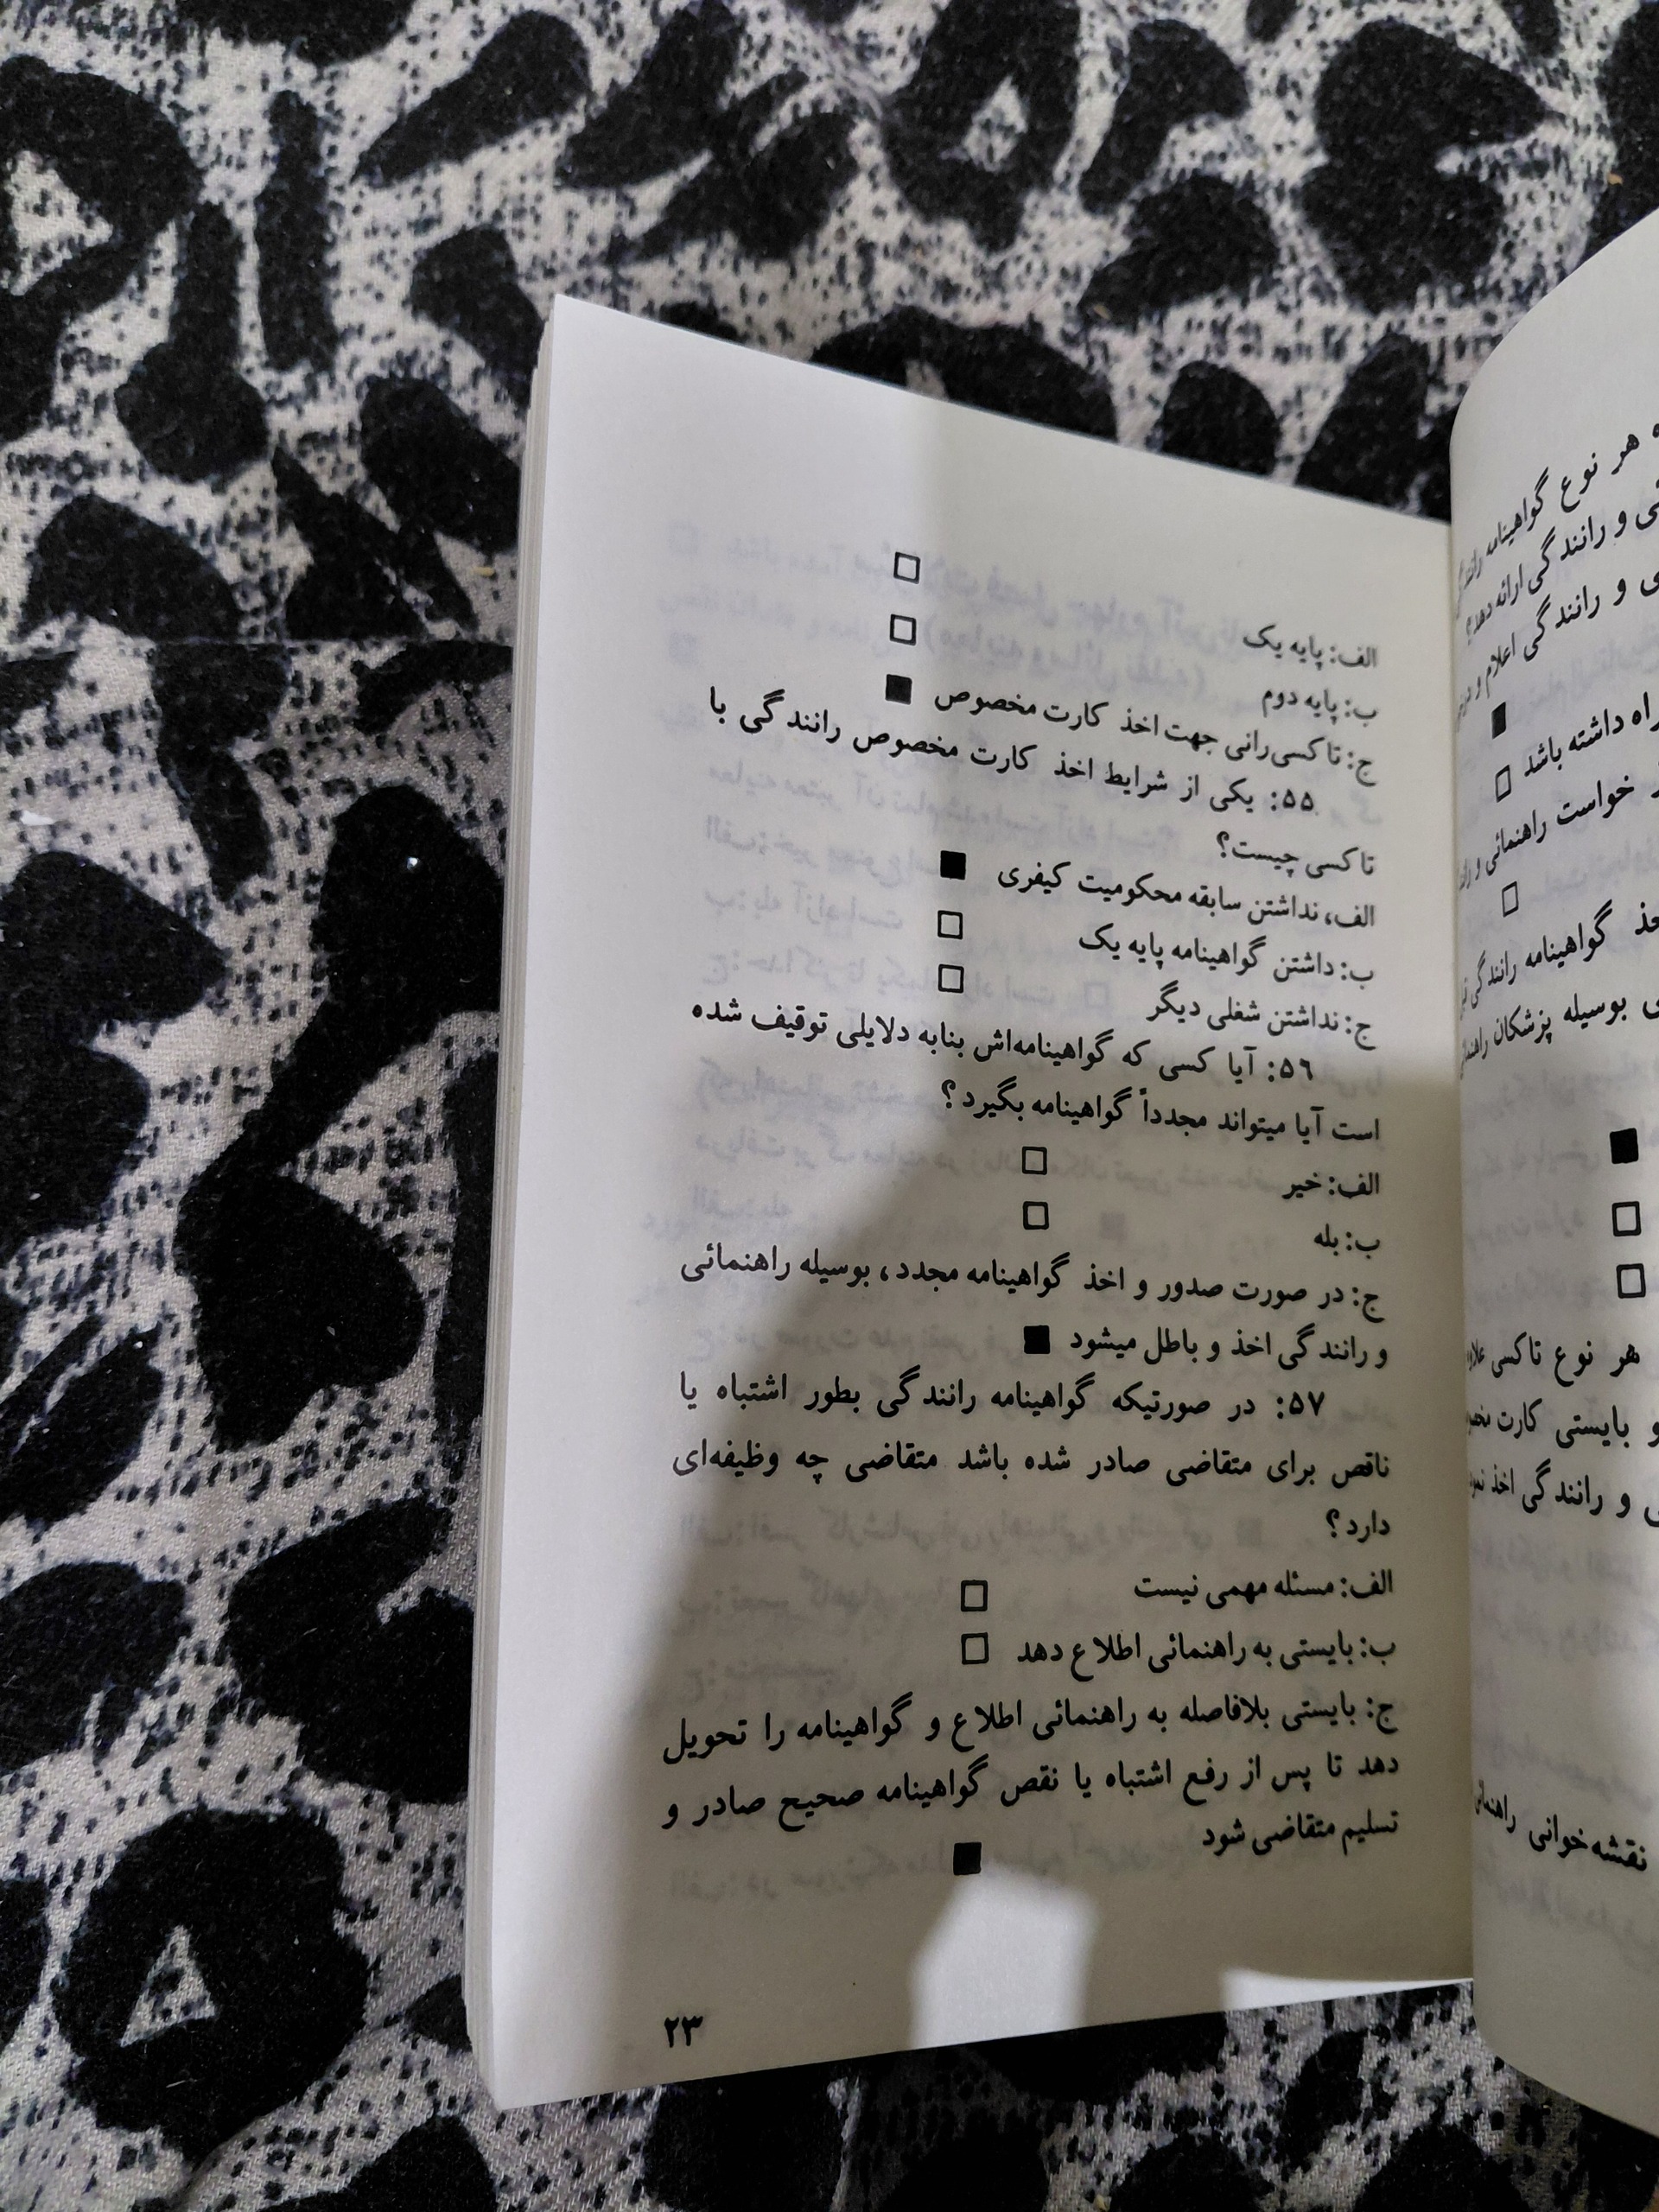 الف: پایه یک □
ب: پایه دوم □
ج: تاکسی‌رانی جهت اخذ کارت مخصوص ■
۵۵: یکی از شرایط اخذ کارت مخصوص رانندگی با
تاکسی چیست؟
الف، نداشتن سابقه محکومیت کیفری ■
ب: داشتن گواهینامه پایه یک □
ج: نداشتن شغلی دیگر □
۵۶: آیا کسی که گواهینامه‌اش بنابه دلایلی توقیف شده
است آیا میتواند مجدداً گواهینامه بگیرد؟
الف: خیر □
ب: بله □
ج: در صورت صدور و اخذ گواهینامه مجدد، بوسیله راهنمائی
و رانندگی اخذ و باطل میشود ■
۵۷: در صورتیکه گواهینامه رانندگی بطور اشتباه یا
ناقص برای متقاضی صادر شده باشد متقاضی چه وظیفه‌ای
دارد؟
الف: مسئله مهمی نیست □
ب: بایستی به راهنمائی اطلاع دهد □
ج: بایستی بلافاصله به راهنمائی اطلاع و گواهینامه را تحویل
دهد تا پس از رفع اشتباه یا نقص گواهینامه صحیح صادر و
تسلیم متقاضی شود ■
۲۳
هر نوع گواهینامه
و رانندگی ارائه دهد؟
و رانندگی اعلام و
داشته باشد □
خواست راهنمائی و
گواهینامه رانندگی
بوسیله پزشکان
هر نوع تاکسی
و بایستی کارت
و رانندگی اخذ
نقشه خوانی